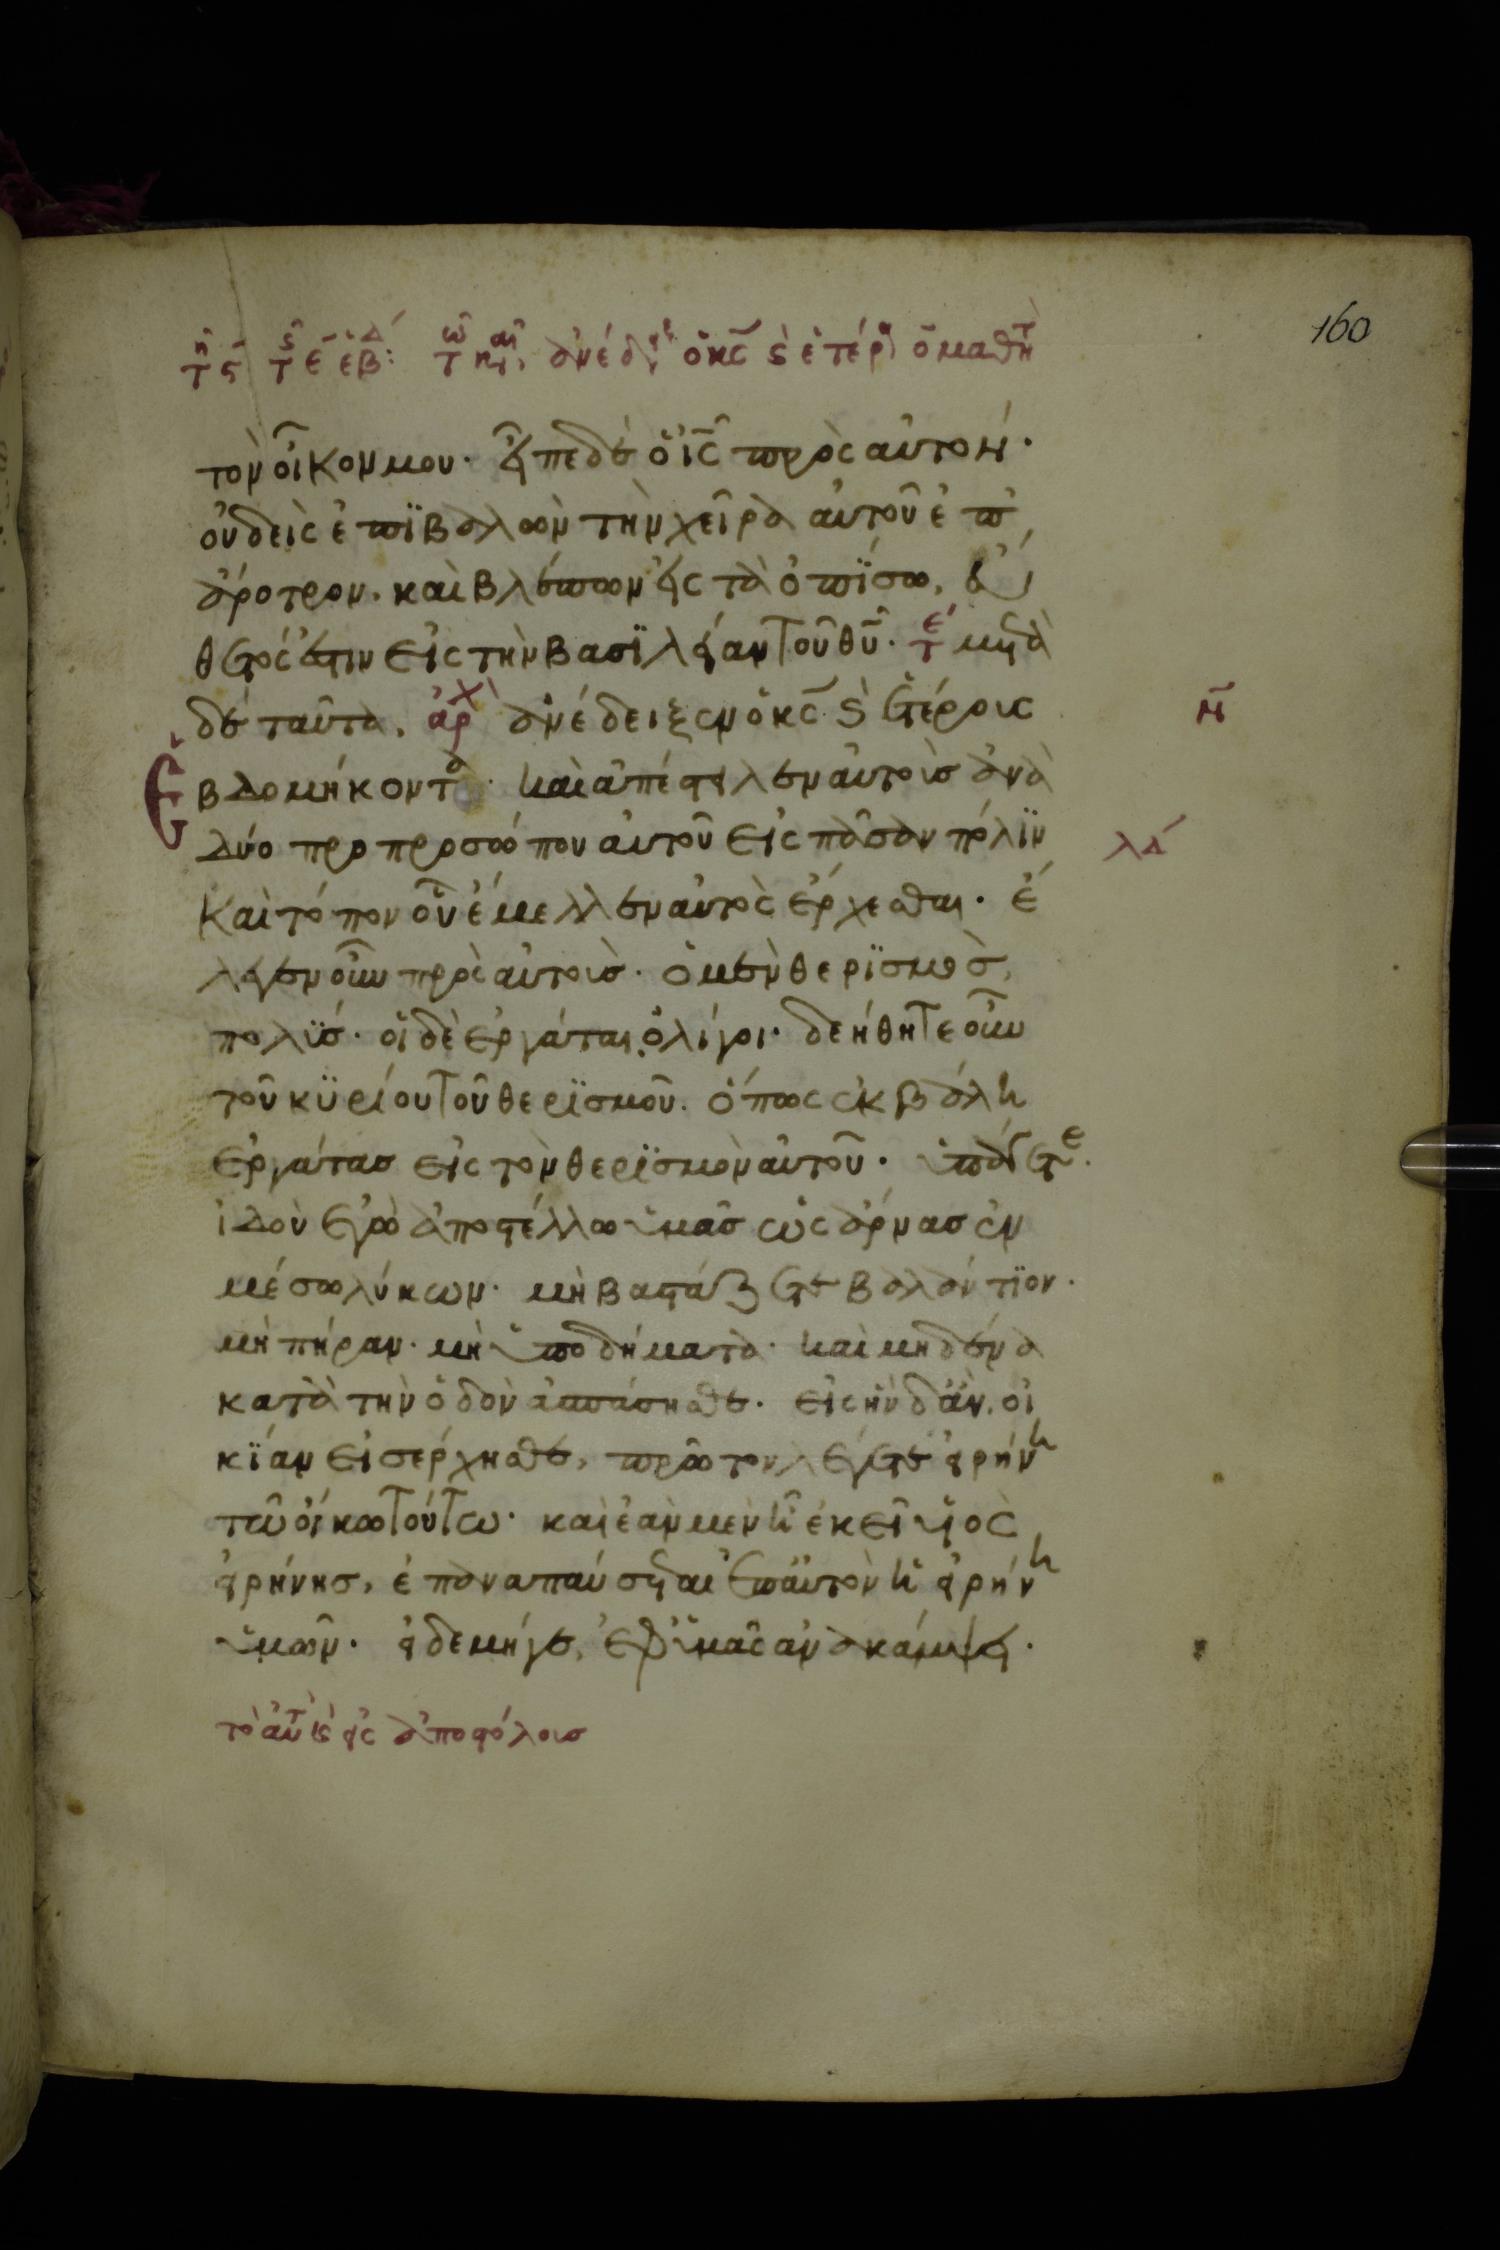 160
ἀνέδει ὁ κς ς ἑτέρ ὁ μαθητ
τὸν οἶκον μου. εἶπε δὲ ὁ ις πρὸς αὐτον.
οὐδεὶς ἐπϊβαλὼν τὴν χεῖρα αὐτοῦ ἐπ
ἄροτρον. καὶ βλέπων εἰς τὰ ὀπΐσω, εὔ
θετός ἐστιν εἰς τὴν βασϊλείαν τοῦ θυ. τε μετὰ
δὲ ταῦτα, ἀρχ ἀνέδειξεν ὁ κς ς ἑτέροις
ἑβδομήκοντα. καὶ ἀπέστειλεν αὐτοὺσ ἀνὰ
δύο προ προσώπου αὐτοῦ εἰς πᾶσαν πόλϊν
καὶ τόπον οὗ ἔμελλεν αὐτὸς ἔρχεσθαι. ἔ
λεγεν οὖν πρὸς αὐτοὺσ. ὁ μὲν θερϊσμὸσ
πολϋσ. οἱ δὲ ἐργάται ὀλίγοι. δεήθητε οὖν
τοῦ κϋρίου τοῦ θερϊσμοῦ. ὅπως ἐκβάλη
ἐργάτασ εἰς τὸν θερϊσμὸν αὐτοῦ. ὑπάγετε.
ἰδοὺ ἐγὼ ἀποστέλλω ὑμᾶσ ὡς ἄρνασ ἐν
μέσω λύκων. μὴ βαστάζετε βαλάντϊον.
μὴ πήραν. μὴ ὑποδήματα. καὶ μηδένα
κατὰ τὴν ὁδὸν ἀσπάσησθε. εἰς ἣν δἂν οἰ
κΐαν εἰσέρχησθε, πρῶτον λέγετε εἰρήνη
τῶ οἴκω τούτω. καὶ ἐὰν μὲν ῆ ἐκεῖ υἱὸς
εἰρήνησ, ἐπαναπαύσεται ἐπαὐτὸν ἡ εἰρήνη
ὑμῶν. εἰ δε μήγε, ἐφ ὑμᾶς ανακάμψει.
τὸ αὐτ ς εἰς ἀποστόλουσ
η
λδ